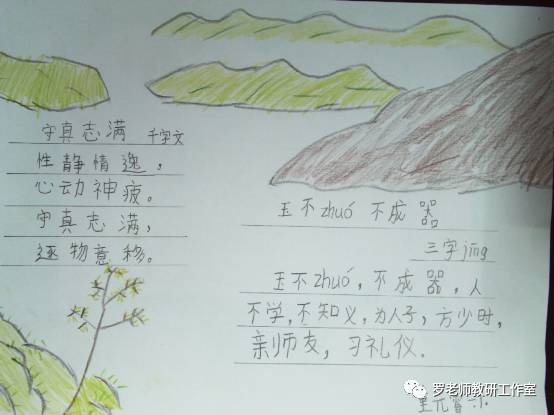 守真志满 千字文
性静情逸，
心动神疲。
守真志满，
逐物意移。
玉不zhuó 不成器
三字jīng
玉不zhuó，不成器，人
不学，不知义，为人子，方少时，
亲师友，习礼仪。
罗老师教研工作室